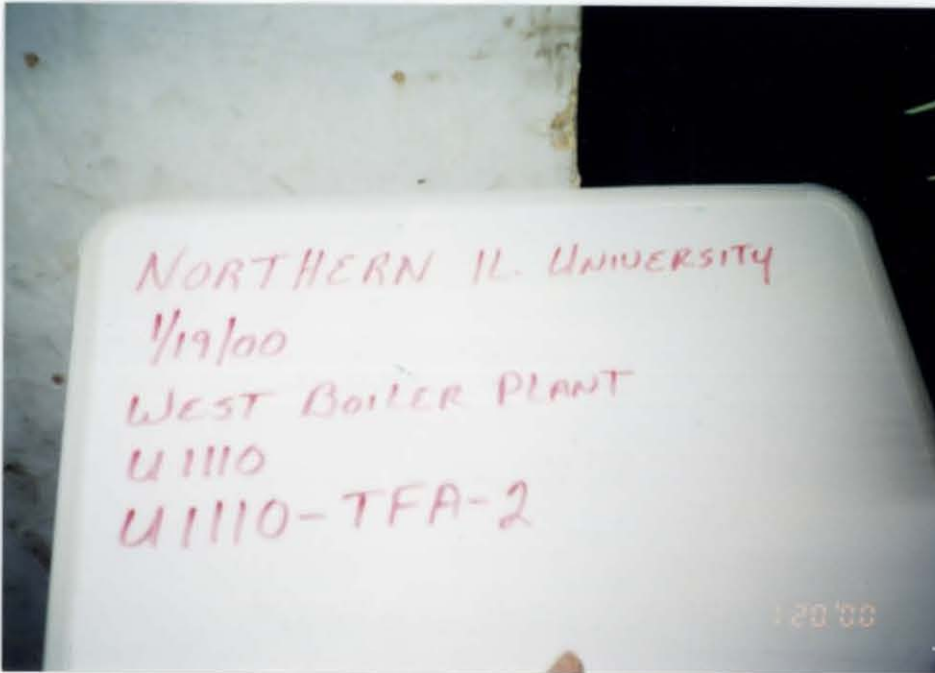 NORTHERN IL. UNIVERSITY
1/19/00
WEST BOILER PLANT
U1110
U1110-TFA-2
1 20 '00